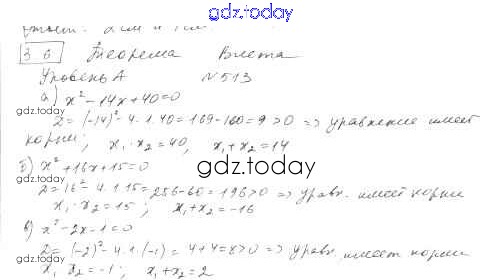 gdz.today
36 Теорема Виета
Уровень А №513
а) x² - 14x + 40 = 0
D = (-14)² - 4·1·40 = 169 - 160 = 9 > 0 => уравнение имеет
корни; x₁·x₂ = 40, x₁ + x₂ = 14
б) x² + 16x + 15 = 0
gdz.today
D = 16² - 4·1·15 = 256 - 60 = 196 > 0 => уравн. имеет корни
x₁·x₂ = 15; x₁ + x₂ = -16
в) x² - 2x - 1 = 0
D = (-2)² - 4·1·(-1) = 4 + 4 = 8 > 0 => уравн. имеет корни
x₁ x₂ = -1; x₁ + x₂ = 2
gdz.today